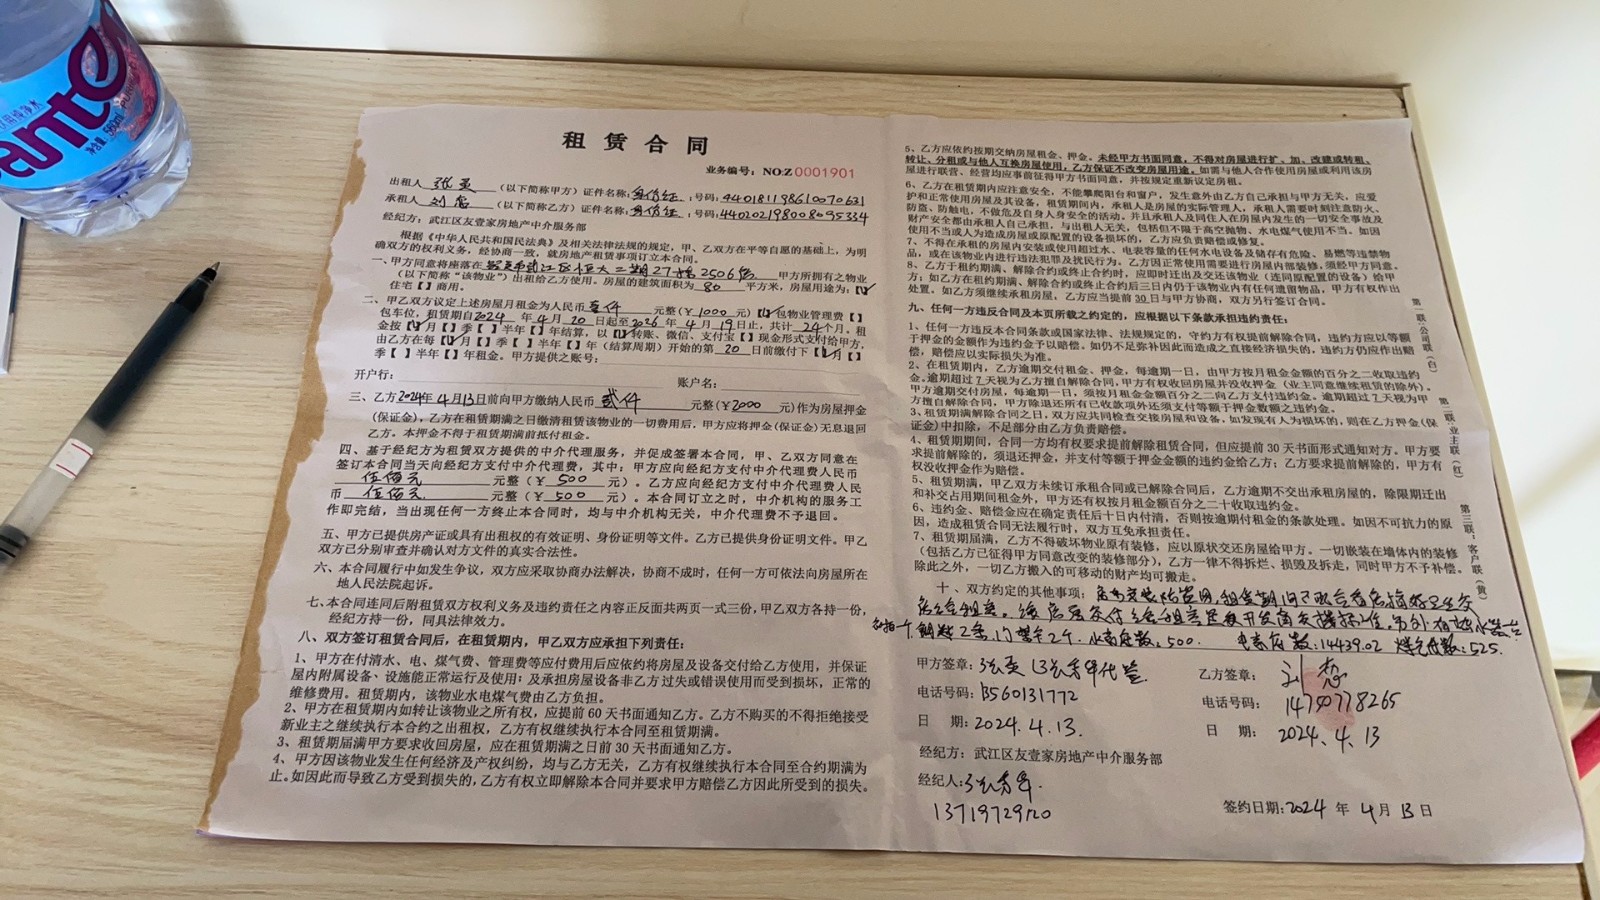 租赁合同
业务编号：NO:Z0001901
出租人 张英 （以下简称甲方）证件名称：身份证；号码：440181198610070631
承租人 刘 （以下简称乙方）证件名称：身份证；号码：440202198008095334
经纪方：武江区友壹家房地产中介服务部
根据《中华人民共和国民法典》及相关法律法规的规定，甲、乙双方在平等自愿的基础上，为明
确双方的权利义务，经协商一致，就房地产租赁事项订立本合同。
一、甲方同意将座落在 韶关市武江区恒大二期27栋2506房 甲方所拥有之物业
（以下简称“该物业”）出租给乙方使用。房屋的建筑面积为 80 平方米，房屋用途为：【✓】
住宅【 】商用。
二、甲乙双方议定上述房屋月租金为人民币 壹仟 元整（￥1000 元）【✓】包物业管理费【 】
包车位，租赁期自2024 年 4 月 20 日起至2026 年 4 月 19 日止，共计 24 个月。租
金按【✓】月【 】季【 】半年【 】年结算，以【✓】转账、微信、支付宝【 】现金形式支付给甲方，
由乙方在每【✓】月【 】季【 】半年【 】年（结算周期）开始的第 20 日前缴付下【✓】月【 】
季【 】半年【 】年租金。甲方提供之账号：
开户行： 账户名：
三、乙方2024年4月13日前向甲方缴纳人民币 贰仟 元整（￥2000 元）作为房屋押金
（保证金），乙方在租赁期满之日缴清租赁该物业的一切费用后，甲方应将押金（保证金）无息退回
乙方。本押金不得于租赁期满前抵付租金。
四、基于经纪方为租赁双方提供的中介代理服务，并促成签署本合同，甲、乙双方同意在
签订本合同当天向经纪方支付中介代理费，其中：甲方应向经纪方支付中介代理费人民币
伍佰元 元整（￥ 500 元）。乙方应向经纪方支付中介代理费人民
币 伍佰元 元整（￥ 500 元）。本合同订立之时，中介机构的服务工
作即完结，当出现任何一方终止本合同时，均与中介机构无关，中介代理费不予退回。
五、甲方已提供房产证或具有出租权的有效证明、身份证明等文件。乙方已提供身份证明文件。甲乙
双方已分别审查并确认对方文件的真实合法性。
六、本合同履行中如发生争议，双方应采取协商办法解决，协商不成时，任何一方可依法向房屋所在
地人民法院起诉。
七、本合同连同后附租赁双方权利义务及违约责任之内容正反面共两页一式三份，甲乙双方各持一份，
经纪方持一份，同具法律效力。
八、双方签订租赁合同后，在租赁期内，甲乙双方应承担下列责任：
1、甲方在付清水、电、煤气费、管理费等应付费用后应依约将房屋及设备交付给乙方使用，并保证
屋内附属设备、设施能正常运行及使用；及承担房屋设备非乙方过失或错误使用而受到损坏，正常的
维修费用。租赁期内，该物业水电煤气费由乙方负担。
2、甲方在租赁期内如转让该物业之所有权，应提前60天书面通知乙方。乙方不购买的不得拒绝接受
新业主之继续执行本合约之出租权，乙方有权继续执行本合同至租赁期满。
3、租赁期届满甲方要求收回房屋，应在租赁期满之日前30天书面通知乙方。
4、甲方因该物业发生任何经济及产权纠纷，均与乙方无关，乙方有权继续执行本合同至合约期满为
止。如因此而导致乙方受到损失的，乙方有权立即解除本合同并要求甲方赔偿乙方因此所受到的损失。
5、乙方应依约按期交纳房屋租金、押金。未经甲方书面同意，不得对房屋进行扩、加、改建或转租、
转让、分租或与他人互换房屋使用，乙方保证不改变房屋用途，如需与他人合作使用房屋或利用该房
屋进行联营、经营均应事前征得甲方书面同意，并按规定重新议定房租。
6、乙方在租赁期内应注意安全，不能攀爬阳台和窗户，发生意外由乙方自己承担与甲方无关，应爱
护和正常使用房屋及其设备，租赁期间内，承租人是房屋的实际管理人，承租人需要时刻注意防火、
防盗、防触电，不做危及自身人身安全的活动，并且承租人及同住人在房屋内发生的一切安全事故及
财产安全都由承租人自己承担，与出租人无关，包括但不限于高空抛物、水电煤气使用不当。如因
使用不当或人为造成房屋或原配置的设备损坏的，乙方应负责赔偿或修复。
7、不得在承租的房屋内安装或使用超过水、电表容量的任何水电设备及储存有危险、易燃等违禁物
品，或在该物业内进行违法犯罪及扰民行为。乙方因正常使用需要进行房屋内部装修，须经甲方同意。
8、乙方于租约期满、解除合约或终止合约时，应即时迁出及交还该物业（连同原配置的设备）给甲
方；如乙方在租约期满、解除合约或终止合约后三日内仍于该物业内有任何遗留物品，甲方有权作出
处置。如乙方须继续承租房屋，乙方应当提前30日与甲方协商，双方另行签订合同。
九、任何一方违反本合同及本页所载之约定的，应根据以下条款承担违约责任：
1、任何一方违反本合同条款或国家法律、法规规定的，守约方有权提前解除合同，违约方应以等额
于押金的金额作为违约金予以赔偿。如仍不足弥补因此而造成之直接经济损失的，违约方仍应作出赔
偿，赔偿应以实际损失为准。
2、在租赁期内，乙方逾期交付租金、押金，每逾期一日，由甲方按月租金金额的百分之二收取违约
金。逾期超过7天视为乙方擅自解除合同，甲方有权收回房屋并没收押金（业主同意继续租赁的除外）。
甲方逾期交付房屋，每逾期一日，须按月租金金额百分之二向乙方支付违约金。逾期超过7天视为甲
方擅自解除合同，甲方除退还所有已收款项外还须支付等额于押金数额之违约金。
3、租赁期满解除合同之日，双方应共同检查交接房屋和设备，如发现有人为损坏的，则在乙方押金（保
证金）中扣除，不足部分由乙方负责赔偿。
4、租赁期期间，合同一方均有权要求提前解除租赁合同，但应提前30天书面形式通知对方。甲方要
求提前解除的，须退还押金，并支付等额于押金金额的违约金给乙方；乙方要求提前解除的，甲方有
权没收押金作为赔偿。
5、租赁期满，甲甲双方未续订承租合同或已解除合同后，乙方逾期不交出承租房屋的，除限期迁出
和补交占用期间租金外，甲方还有权按月租金额百分之二十收取违约金。
6、违约金、赔偿金应在确定责任后十日内付清，否则按逾期付租金的条款处理。如因不可抗力的原
因，造成租赁合同无法履行时，双方互免承担责任。
7、租赁期届满，乙方不得破坏物业原有装修，应以原状交还房屋给甲方。一切嵌装在墙体内的装修
（包括乙方已征得甲方同意改变的装修部分），乙方一律不得拆烂、损毁及拆走，同时甲方不予补偿。
除此之外，一切乙方搬入的可移动的财产均可搬走。
十、双方约定的其他事项：
钥匙2条，门禁卡2个，水表底数：500. 电表底数：14439.02 煤气底数：525.
甲方签章：张英 代签
电话号码：13560131772
日 期：2024.4.13.
经纪方：武江区友壹家房地产中介服务部
经纪人：
13719729120
乙方签章：刘
电话号码：14750778265
日 期：2024.4.13
签约日期：2024 年 4 月 13 日
第一联：公司联（白）
第二联：业主联（红）
第三联：客户联（黄）
净含量：560ml